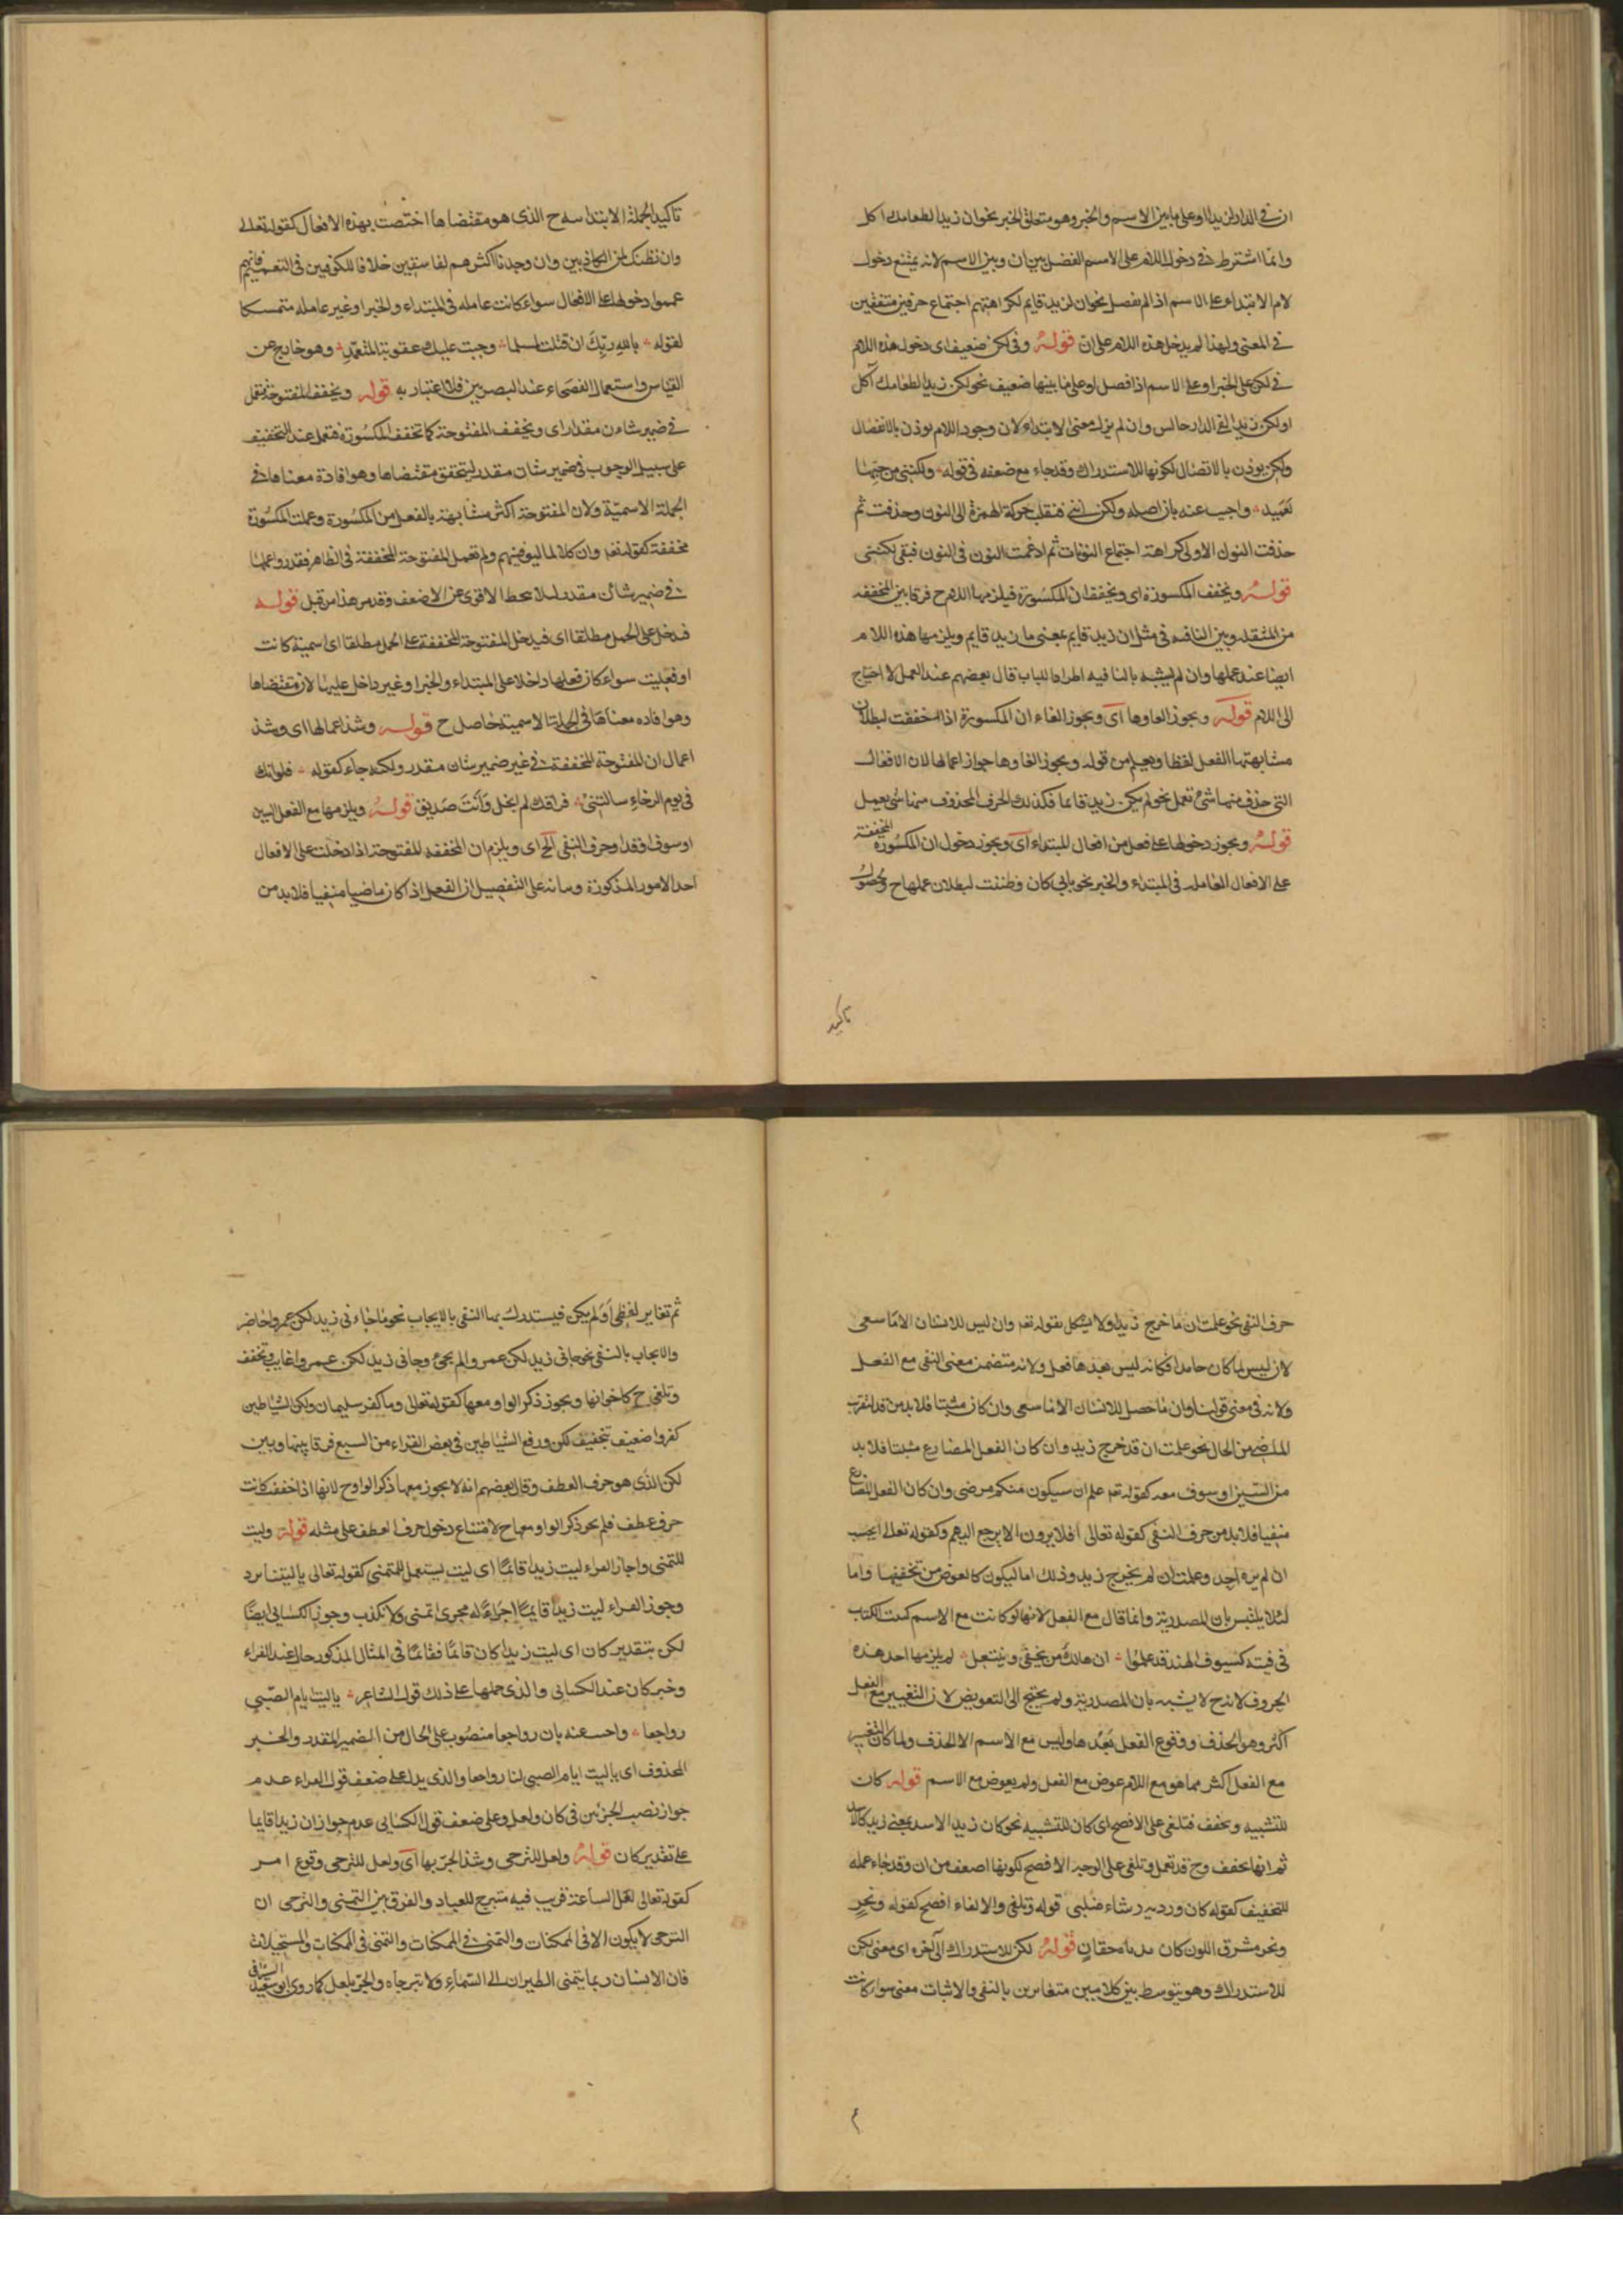 ان في الدار لزيدا او على ما بين الاسم والخبر وهو متعلق الخبر نحو ان زيدا لطعامك اكل
وانما اشترط في دخول اللام على الاسم الفصل بين ان وبين الاسم لانه يمتنع دخول
لام الابتداء على الاسم اذا لم يفصل نحو ان لزيد قايم لكراهتهم اجتماع حرفين متفقين
في المعنى ولهذا لم يدخل هذه اللام على ان قوله وفي لكن ضعيف اى دخول هذه اللام
في لكن على الخبر او على الاسم اذا فصل او على ما بينها ضعيف نحو لكن زيدا لطعامك آكل
او لكن زيدا لفي الدار جالس وان لم يزل معنى الابتداء لان وجود اللام يوذن بالانفصال
ولكن يوذن بالاتصال لكونها للاستدراك وقد جاء مع ضعفه في قوله ولكنني من حبها
لعميد واجيب عنه بان اصله ولكن انني فنقلت حركة الهمزة الى النون وحذفت ثم
حذفت النون الاولى كراهة اجتماع النونات ثم ادغمت النون في النون فبقى لكنني
قوله وتخفف المكسورة اى وتخفف ان المكسورة فيلزمها اللام ح فرقا بين المخففه
من المثقله وبين النافيه في مثل ان زيد قايم بمعنى ما زيد قايم ويلزمها هذه اللام
ايضا عند عملها وان لم يشبه بالنافيه اطرادا للباب قال بعضهم عند العمل لا احتاج
الى اللام قوله ويجوز الغاوها اى ويجوز الغاء ان المكسورة اذا خففت لبطلان
مشابهتها الفعل لفظا ويعلم من قوله ويجوز الغاوها جواز اعمالها لان الافعال
التي حذف منها شئ تعمل نحو لم يكن زيد قايما فكذلك الحرف المحذوف منها شئ يعمل
قوله ويجوز دخولها على فعل من افعال المبتداء اى ويجوز دخول ان المكسورة المخففة
على الافعال العامله في المبتداء والخبر نحو باب كان وظننت لبطلان عملها ح ولحصول
تاكيد
تاكيد الجملة الابتدا سه ح الذى هو مقتضاها اختصت بهذه الافعال كقوله تعالى
وان نظنك لمن الكاذبين وان وجدنا اكثرهم لفاسقين خلافا للكوفيين فى التعميم فانهم
عمموا دخولها على الافعال سواء كانت عامله فى المبتداء والخبر او غير عامله متمسكا
لقوله بالله ربك ان قتلت لمسلما وجبت عليك عقوبة المتعمد وهو خارج عن
القياس واستعمال الفصحاء عند البصريين فلا اعتبار به قوله وتخفف المفتوحة فتعمل
فى ضمير شان مقدر اى وتخفف المفتوحة كما تخفف المكسورة فتعمل عند التخفيف
على سبيل الوجوب فى ضمير شان مقدر ليتحقق مقتضاها وهو افادة معناها فى
الجملة الاسمية ولان المفتوحة اكثر مشابهة بالفعل من المكسورة وعملت المكسورة
مخففة كقوله تعـ وان كلا لما ليوفينهم ولم تعمل المفتوحة المخففة فى الظاهر فقدروا عملها
فى ضمير شان مقدر لئلا يحط الاقوى عن الاضعف وقد مر هذا من قبل قوله
فدخل على الجمل مطلقا اى فيدخل المفتوحة المخففة على الجمل مطلقا اى اسمية كانت
او فعلية سواء كان فعلها داخلا على المبتداء والخبر او غير داخل عليها لان مقتضاها
وهو افاده معناها فى الجملة الاسمية حاصل ح قوله وشذ اعمالها اى وشذ
اعمال ان المفتوحة المخففة فى غير ضمير شان مقدر ولكنه جاء كقوله فلو انك
فى يوم الرخاء سالتنى فراقك لم ابخل وانت صديق قوله ويلزمها مع الفعل السين
او سوف او قد او حرف النفى الخ اى ويلزم ان المخففه المفتوحة اذا دخلت على الافعال
احد الامور المذكورة وبيانه على التفصيل ان الفعل اذا كان ماضيا منفيا فلا بد من
حرف النفى نحو علمت ان ما خرج زيد ولا يشكل بقوله تعـ وان ليس للانسان الا ما سعى
لان ليس لما كان جامدا فكانه ليس بعدها فعل ولانه متضمن معنى النفى مع الفعل
ولانه فى معنى قولنا وان ما حصل للانسان الا ما سعى وان كان مثبتا فلا بد من قد لتقرب
الماضى من الحال نحو علمت ان قد خرج زيد وان كان الفعل المضارع مثبتا فلا بد
من السين او سوف معه كقوله تعـ علم ان سيكون منكم مرضى وان كان الفعل المضارع
منفيا فلا بد من حرف النفى كقوله تعالى افلا يرون الا يرجع اليهم وكقوله تعالى ايحسب
ان لم يره احد وعلمت ان لم يخرج زيد وذلك اما ليكون كالعوض من تخفيفها واما
لئلا يلتبس بان المصدرية وانما قال مع الفعل لانها لو كانت مع الاسم كبيت الكتاب
فى فتية كسيوف الهند قد علموا ان هالك من يحفى وينتعل لم يلزمها احد هذه
الحروف لانه ح لا يشبه بان المصدرية ولم يحتج الى التعويض لان التغيير مع الفعل
اكثر وهو الحذف ووقوع الفعل بعدها وليس مع الاسم الا الحذف ولما كان التغيير
مع الفعل اكثر مما هو مع اللام عوض مع الفعل ولم يعوض مع الاسم قوله كان
للتشبيه وتخفف فتلغى على الافصح اى كان للتشبيه نحو كان زيدا الاسد بمعنى زيد كالاسد
ثم انها تخفف وح قد تعمل وتلغى على الوجه الافصح لكونها اضعف من ان وقد جاء عمله
للتخفيف كقوله كان وريديه رشاء خلب قوله وتلغى والالغاء افصح كقوله ونحر
ونحر مشرق اللون كان ثدياه حقان قوله لكن للاستدراك الى آخره اى معنى لكن
للاستدراك وهو يتوسط بين كلامين متغايرين بالنفى والاثبات معنى سواء كانت
ثم تغاير لفظى او لم يكن فيستدرك بها النفى بالايجاب نحو ما جاءنى زيد لكن عمرا حاضر
والايجاب بالنفى نحو جانى زيد لكن عمر والم يجئ وجانى زيد لكن عمروا غايب وتخفف
وتلغى ح كاخواتها ويجوز ذكر الواو معها كقوله تعالى وما كفر سليمان ولكن الشياطين
كفروا ضعيف بتخفيف لكن ورفع الشياطين فى بعض القراء من السبع فرقا بينها وبين
لكن الذى هو حرف العطف وقال بعضهم انه لا يجوز معها ذكر الواو ح لانها اذا خففت كانت
حرف عطف فلم يجز ذكر الواو معها ح لامتناع دخول حرف العطف على مثله قوله وليت
للتمنى واجاز الفراء ليت زيدا قائما اى ليت يستعمل للتمنى كقوله تعالى يا ليتنا نرد
وجوز الفراء ليت زيدا قايما اجراءً له مجرى اتمنى ولا نكذب وجوز الكسائى ايضا
لكن بتقدير كان اى ليت زيدا كان قائما فقائما فى المثال المذكور حال عند الفراء
وخبر كان عند الكسائى والذى حملها على ذلك قول الشاعر يا ليت ايام الصبى
رواجعا واجيب عنه بان رواجعا منصوب على الحال من الضمير المقدر والخبر
المحذوف اى يا ليت ايام الصبى لنا رواجعا والذى يدل على ضعف قول الفراء عدم
جواز نصب الجزئين فى كان ولعل وعلى ضعف قول الكسائى عدم جواز ان زيدا قايما
على تقدير كان قوله ولعل للترجى وشذ الجر بها اى ولعل للترجى وقوع امر
كقوله تعالى لعل الساعة قريب فيه مترج للعباد والفرق بين التمنى والترجى ان
الترجى لا يكون الا فى الممكنات والتمنى فى الممكنات والتمنى فى الممكنات والمستحيلات
فان الانسان ربما يتمنى الطيران الى السماء ولا يترجاه والجر بلعل كما روى ابو سعيد السيرافى